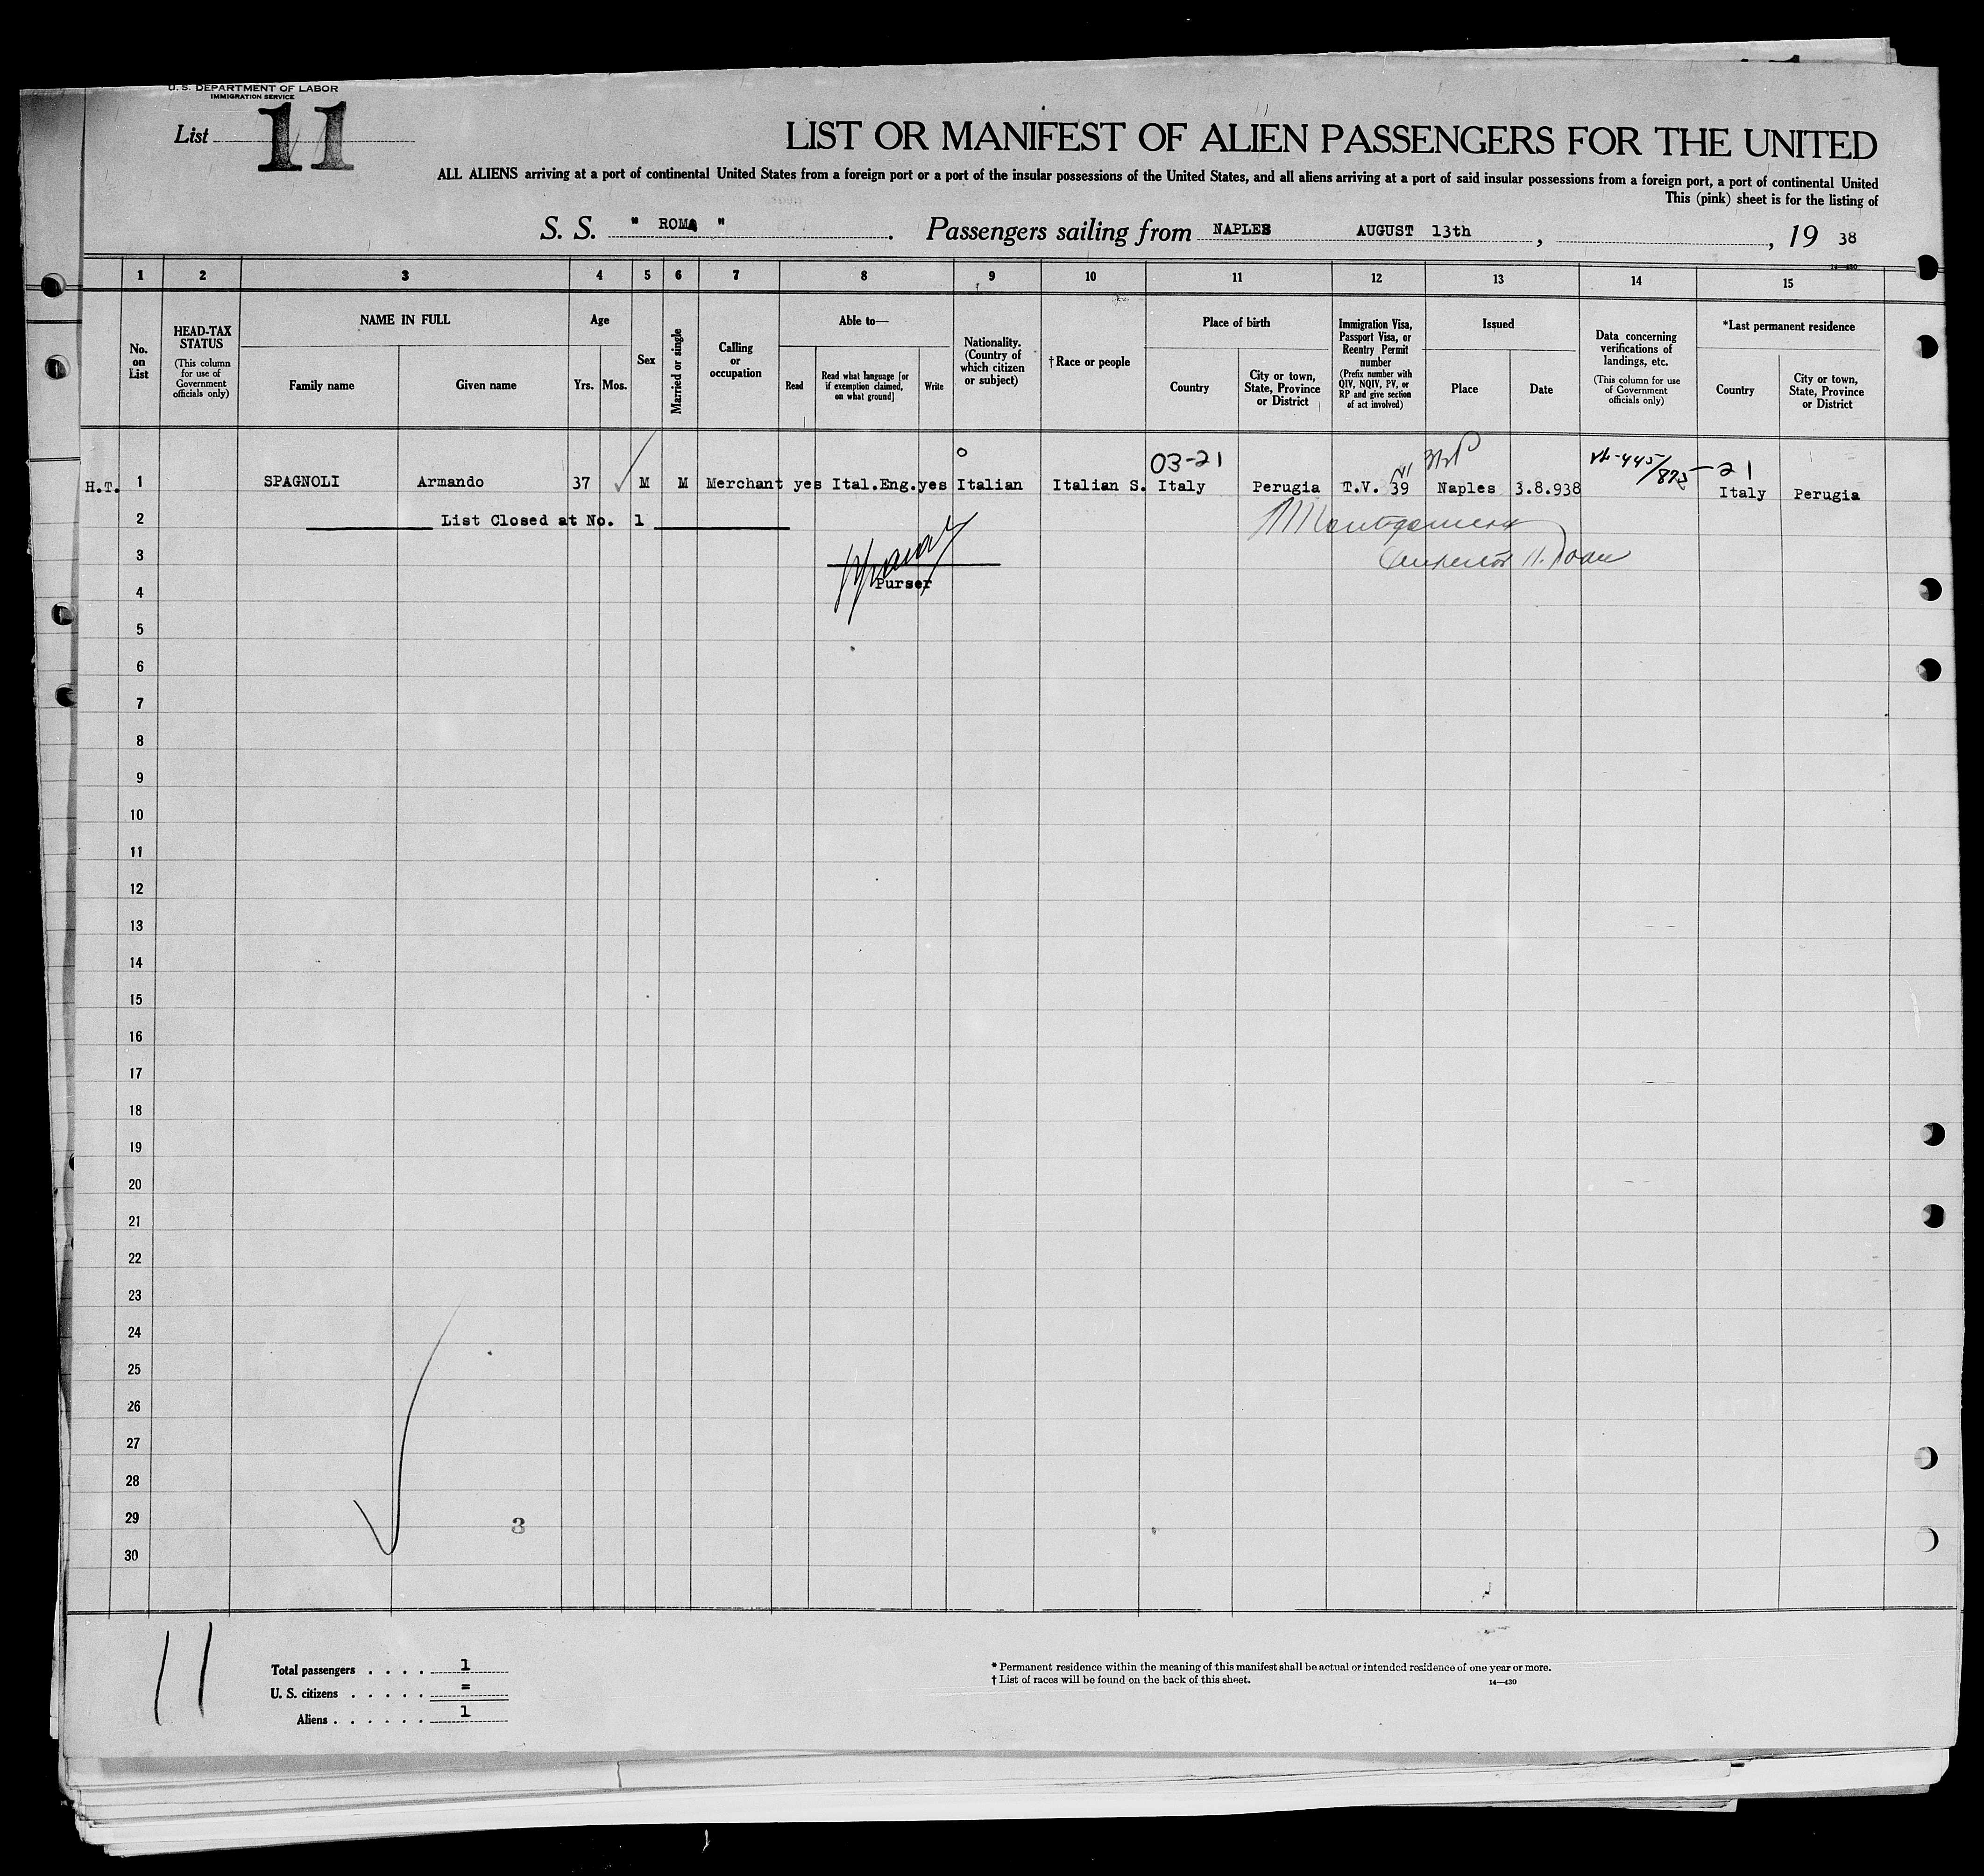 U. S. DEPARTMENT OF LABOR
IMMIGRATION SERVICE
List 11
LIST OR MANIFEST OF ALIEN PASSENGERS FOR THE UNITED
ALL ALIENS arriving at a port of continental United States from a foreign port or a port of the insular possessions of the United States, and all aliens arriving at a port of said insular possessions from a foreign port, a port of continental United
This (pink) sheet is for the listing of
S. S. " ROMA " . Passengers sailing from NAPLES AUGUST 13th , , 19 38
14—430
1 2 3 4 5 6 7 8 9 10 11 12 13 14 15
No. on List
HEAD-TAX STATUS
(This column for use of Government officials only)
NAME IN FULL
Family name
Given name
Age
Yrs.
Mos.
Sex
Married or single
Calling or occupation
Able to—
Read
Read what language [or if exemption claimed, on what ground]
Write
Nationality. (Country of which citizen or subject)
†Race or people
Place of birth
Country
City or town, State, Province or District
Immigration Visa, Passport Visa, or Reentry Permit number
(Prefix number with QIV, NQIV, PV, or RP and give section of act involved)
Issued
Place
Date
Data concerning verifications of landings, etc.
(This column for use of Government officials only)
*Last permanent residence
Country
City or town, State, Province or District
03-21
-21
H.T. 1 SPAGNOLI Armando 37 M M Merchant yes Ital.Eng. yes Italian Italian S. Italy Perugia T.V. 39 Naples 3.8.938 Italy Perugia
2 List Closed at No. 1
Montgomery
3
Purser
4
5
6
7
8
9
10
11
12
13
14
15
16
17
18
19
20
21
22
23
24
25
26
27
28
29
3
30
11
Total passengers . . . . 1
U. S. citizens . . . . . =
Aliens . . . . . . 1
* Permanent residence within the meaning of this manifest shall be actual or intended residence of one year or more.
† List of races will be found on the back of this sheet.
14—430